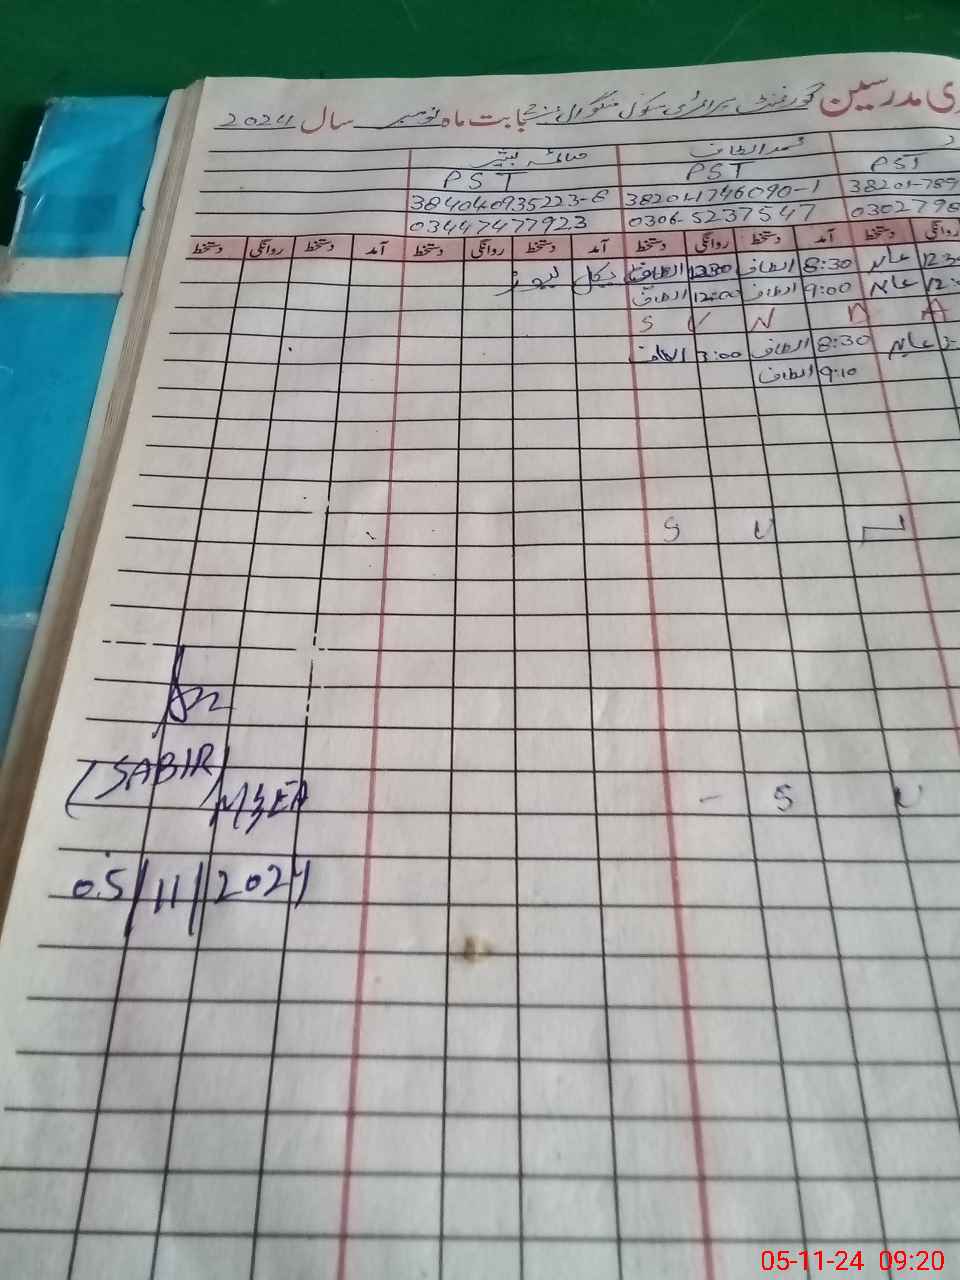 ری مدرسین گورنمنٹ پرائمری سکول بابت ماہ نومبر سال 2024
محمد الطاف صائمہ بشیر
PST PST PST
38201-789 38201-1746090-1 384040935223-6
030279 0306-5237547 03447477923
روانگی دستخط آمد دستخط روانگی دستخط آمد دستخط روانگی دستخط آمد دستخط روانگی دستخط
12:3 عابد 8:30 الطاف 12:30 الطاف میڈیکل لیو
12: عابد 9:00 الطاف 12:00 الطاف
S U N D A
عابد 8:30 الطاف 3:00 الطاف
9:10 الطاف
S U N
(SABIR)
MEA
- S U
05/11/2024
05-11-24 09:20